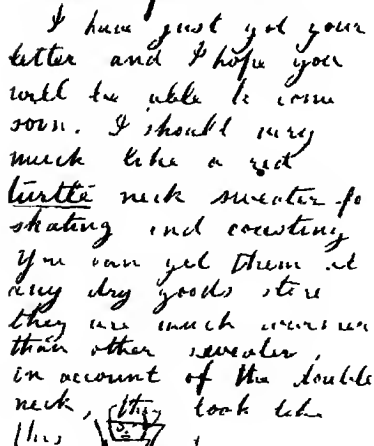 I have just got your
letter and I hope you
will be able to come
soon. I should very
much like a red
turtle neck sweater fo
skating and coasting
You can get them at
any dry goods store
they are much warmer
than other sweater,
in account of the double
neck, they look like
this